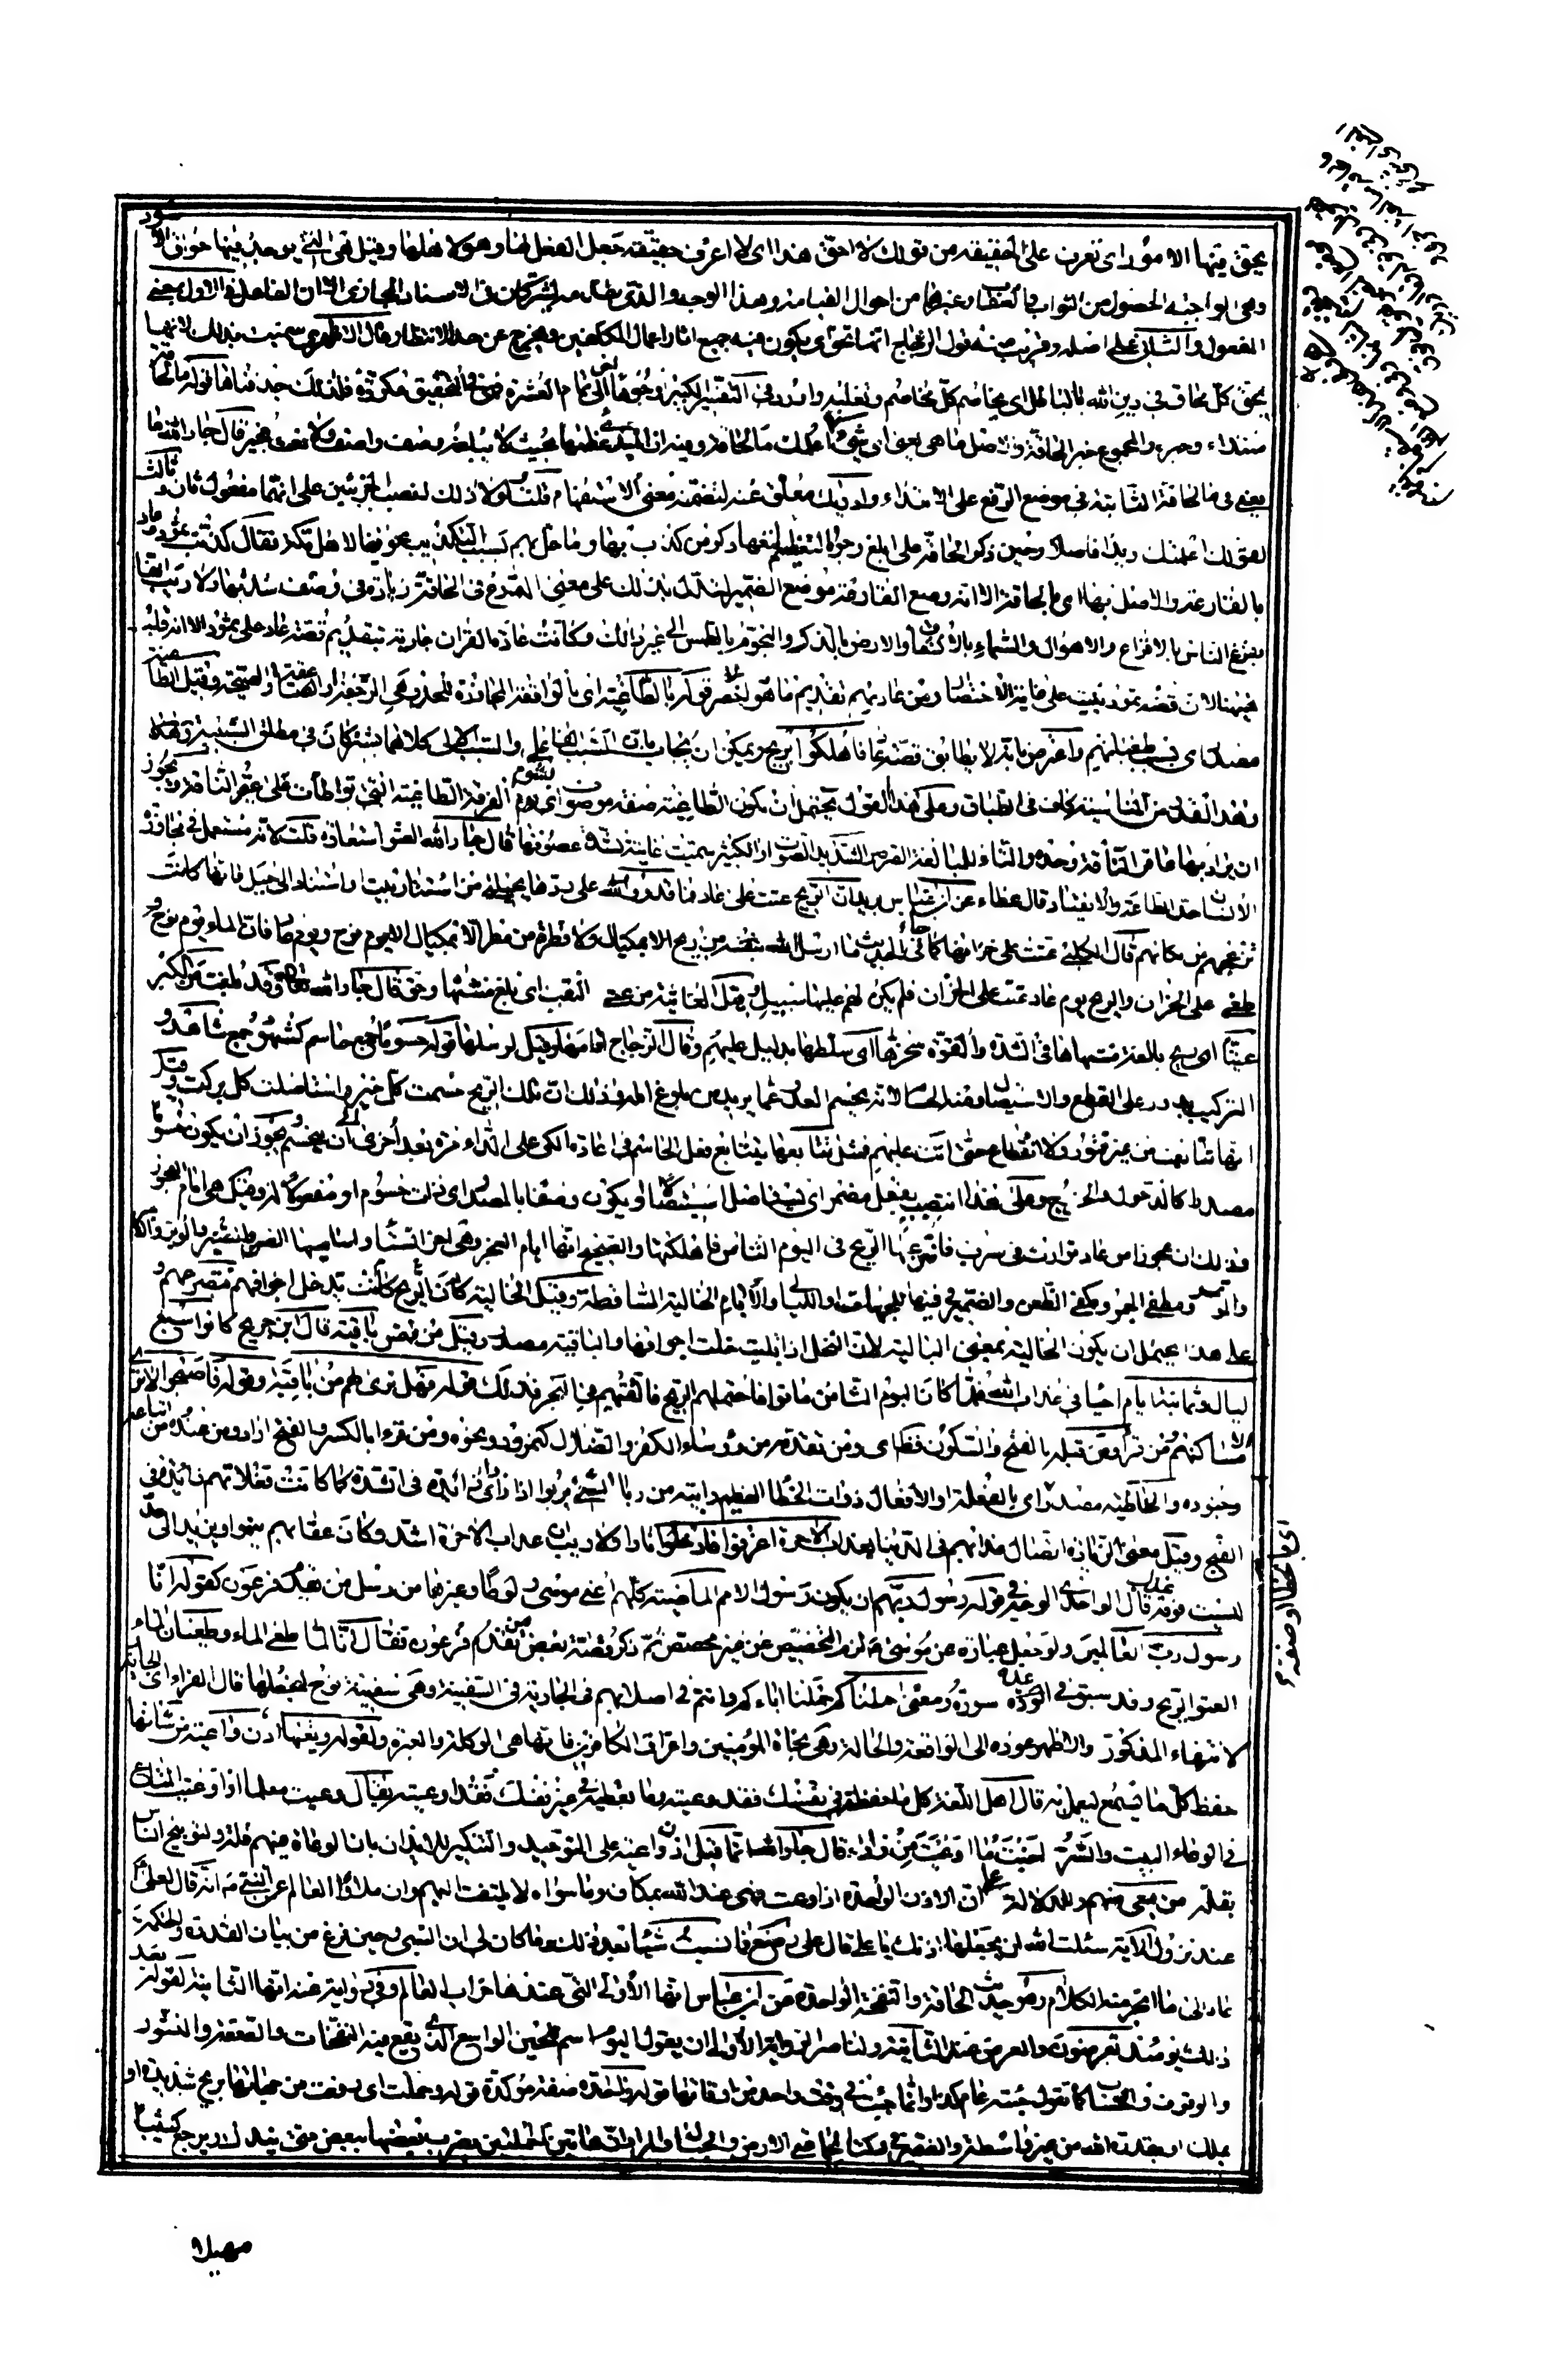 يحق فيها الامور اى تعرف على الحقيقة من قولك لا احق هذا اى لا اعرف حقيقته جعل الفعل لها وهو لاهلها وقيل هى التى يوجد فيها حواق الامور
وهى الواجبة الحصول من الثواب والعقاب وغيرهما من احوال القيامة وهذا الوجه والذى يتقدمه يشتركان فى الاسناد المجازى الا ان الفاعل فى الاول بمعنى
المفعول والثانى على اصله وقريب منه قول الزجاج انها تحق اى يكون فيه جميع اثار اعمال المكلفين ويخرج عن حد الانتظار وقال الازهرى سميت بذلك لانها
يحق كل محاق فى دين الله بالباطل اى يخاصم كل مخاصم وتغلبه واورد فى التفسير الكبير وجوها اخر الى تمام العشرة هى فى التحقيق مكررة فلذلك حذفناها قوله ما الحاقة
مبتداء وخبر والمجموع خبر الحاقة والاصل ما هى يعنى اى شىء اعلمك ما الحاقة وفيه ان عظمها بحيث لا يبلغه وصف واصف ولا تعريف مخبر قال جار الله ما
يعنى فى ما الحاقة الثانية فى موضع الرفع على الابتداء وادريك معلق عنه لتضمنه معنى الاستفهام قلت ولولا ذلك لنصب الجزئين على انهما مفعول ثان وثالث
لقولك اعلمتك زيدا فاضلا وحين ذكر الحاقة على ابلغ وجوه التعظيم اتبعها ذكر من كذب بها وما حل بهم بسبب التكذيب تخويفا لاهل مكة فقال كذبت ثمود وعاد
بالقارعة والاصل بها اى بالحاقة الا انه وضع القارعة موضع الضمير ليدل بذلك على معنى القرع فى الحاقة زيادة فى وصف شدتها ولا ريب انها
تقرع الناس بالافزاع والاهوال والسماء بالانشقاق والارض بالدك والنجوم بالطمس الى غير ذلك وكانت عادة القران جارية بتقديم قصة عاد على ثمود الا انه قلب
ههنا لان قصة ثمود بنيت على غاية الاختصار ومن عادتهم تقديم ما هو اخصر قوله بالطاغية اى بالواقعة المجاوزة للحد وهى الرجفة او الصاعقة او الصيحة وقيل الطاغية
مصدر اى بسبب طغيانهم واعترض بانه لا يطابق قصة عاد فاهلكوا بريح ويمكن ان يجاب بان السبب الفاعلى والسبب الالى كلاهما يشتركان فى مطلق السببية وهذا
القدر من المناسبة كاف فى الطباق وعلى هذا القول يحتمل ان يكون الطاغية صفة موصوف اى بشوم الفرقة الطاغية التى تواطأت على عقر الناقة ويجوز
ان يراد بها عاقر الناقة وحده والتاء للمبالغة الصرصر الشديد الصوت او الكثير سميت عاتية لشدة عصوفها قال جار الله العتو استعارة قلت لانه مستعمل فى مجاوزة
الانسان حد الطاعة والانقياد قال عطاء عن ابن عباس يريد ان الريح عتت على عاد فما قدروا على ردها بحيلة من استتار ببيت او استناد الى جبل فانها كانت
تنزعهم من مكانهم قال الكلبى عتت على خزانها كما جاء فى الحديث ما ارسل الله سفينة من ريح الا بمكيال ولا قطرة من مطر الا بمكيال الا يوم نوح ويوم عاد فان الماء يوم نوح
طغى على الخزان والريح يوم عاد عتت على الخزان فلم يكن لهم عليها سبيل وقيل العاتية من عتى النقب اى بلغ منتهاها وجف قال جار الله تعالى وقد بلغت من الكبر
عتيا اى ريح بالغة منتهاها فى الشدة والقوة سخرها اى سلطها بدليل عليهم وقال الزجاج اقامها وقيل ارسلها قوله حسوما جمع حاسم كشهود جمع شاهد و
التركيب يدور على القطع والاستيصال ومنه الحسام لانه يحسم العدو عما يريد من بلوغ المراد وذلك ان تلك الريح حسمت كل خير واستاصلت كل بركة وقيل
انها تتابعت من غير فتور ولا انقطاع حتى اتت عليهم فمثل تتابعها بتتابع فعل الحاسم فى اعادة الكى على الداء مرة بعد اخرى الى ان ينحسم ويجوز ان يكون حسوما
مصدرا كالدخول والخروج وعلى هذا انتصب بفعل مضمر اى يستاصل استيصالا او يكون وصفا بالمصدر اى ذات حسوم او مفعولا له وقيل هى ايام العجوز
وذلك ان عجوزا من عاد توارت فى سرب فانتزعتها الريح فى اليوم الثامن فاهلكتها والصحيح انها ايام العجز وهى اخر الشتاء واساميها الصن والصنبر والوبر والامر
والمؤتمر ومطفئ الجمر ومكفئ الظعن والضمير فى فيها للجهات او الليالى والايام الخالية الساقطة وقيل الخالية كان الريح كانت تدخل اجوافهم فتصرعهم و
على هذا يحتمل ان يكون الخالية بمعنى البالية لان النخل اذا بليت خلت اجوافها والباقية مصدر وقيل من نفس باقية قال ابن جريج كانوا سبع
ليال وثمانية ايام احيا فى عذاب الله فلما كان اليوم الثامن ماتوا فاحتملهم الريح فالقتهم فى البحر فذلك قوله فهل ترى لهم من باقية وقوله فاصبحوا لا ترى
الا مساكنهم من قرأ ومن قبله بالفتح والسكون فظاهر اى ومن تقدمه من رؤساء الكفر والضلال كنمرود ونحوه ومن قرءا بالكسر والفتح اراد ومن عنده من اتباعه
وجنوده والخاطئة مصدر اى بالفعلة او الافعال ذوات الخطا العظيم رابية من ربا الشىء يربوا اذا زاد اى زائدة فى الشدة كما كانت فعلاتهم زائدة فى
القبح وقيل معنى الزيادة اتصال عذابهم فى الدنيا بعذاب الاخرة اغرقوا فادخلوا نارا ولا ريب ان عذاب الاخرة اشد وكان عقابهم ينمو او يزيد الى حد
ليست فوقه عذاب قال الواحدى الوجه فى قوله رسول ربهم ان يكون رسول الامم الماضية كلهم اعنى موسى ولوطا وغيرهما من رسل من قبل فرعون كقوله انا
رسول رب العالمين ولو جعل عبارة عن موسى ع لزم التخصيص من غير مخصص ثم ذكر قصة بعض من تقدم فرعون فقال انا لما طغى الماء وطغيان الماء
العتو الريح وقد سبق فى سورة هود ومعنى حملناكم حملنا اباءكم وانتم فى اصلابهم فى الجارية فى السفينة وهى سفينة نوح لنجعلها قال الفراء اى الجارية
لانتهاء المذكور والاظهر عوده الى الواقعة والحالة وهى نجاة المؤمنين واغراق الكافرين فانها هى الموعظة والعبرة ولقوله وتعيها اذن واعية من شانها
حفظ كل ما يسمع ليعمل به قال اهل اللغة كل ما حفظته فى نفسك فقد وعيته وما حفظته فى غير نفسك فقد اوعيته يقال وعيت علما واوعيت المتاع
فى الوعاء البيت والشر اخبث ما اوعيت من زاد قال جار الله انما قيل اذن واعية على التوحيد والتنكير للايذان بان الوعاة فيهم قلة ولتوبيخ الناس
بقلة من يعى منهم وللدلالة على ان الاذن الواحدة اذا وعت فهى عند الله بمكان وما سواه لا يلتفت اليهم وان ملاؤا العالم عن النبى ص انه قال لعلى
عند نزول الاية سئلت الله ان يجعلها اذنك يا على قال على رضع فما نسيت شيئا بعد ذلك وما كان لى ان انسى وحين فرغ من بيان القدرة والحكمة
عاد الى ما انجر منه الكلام وهو حديث الحاقة والنفخة الواحدة عن ابن عباس انها الاولى التى عندها خراب العالم وفى رواية عنه انها الثانية لقوله بعد
ذلك يومئذ تعرضون والعرض عند الثانية ولناصر الرواية الاولى ان يقول اليوم اسم للحين الواسع الذى يقع فيه النفخات والصعقة والنشور
والوقوف والحساب كما تقول جئته عام كذا وانما جئت فى وقت واحد من اوقاته قوله واحدة صفة مؤكدة قوله وحملت اى رفعت من جهاتها بريح شديدة او
بملك او بقدرة الله من غير واسطة والضمير فى دكتا لجماعتى الارض والجبال والمراد ان هاتين الجملتين يضرب بعضها ببعض حتى يندك ويرجع كثيبا
اى بالخطا او صفة
مهيلا